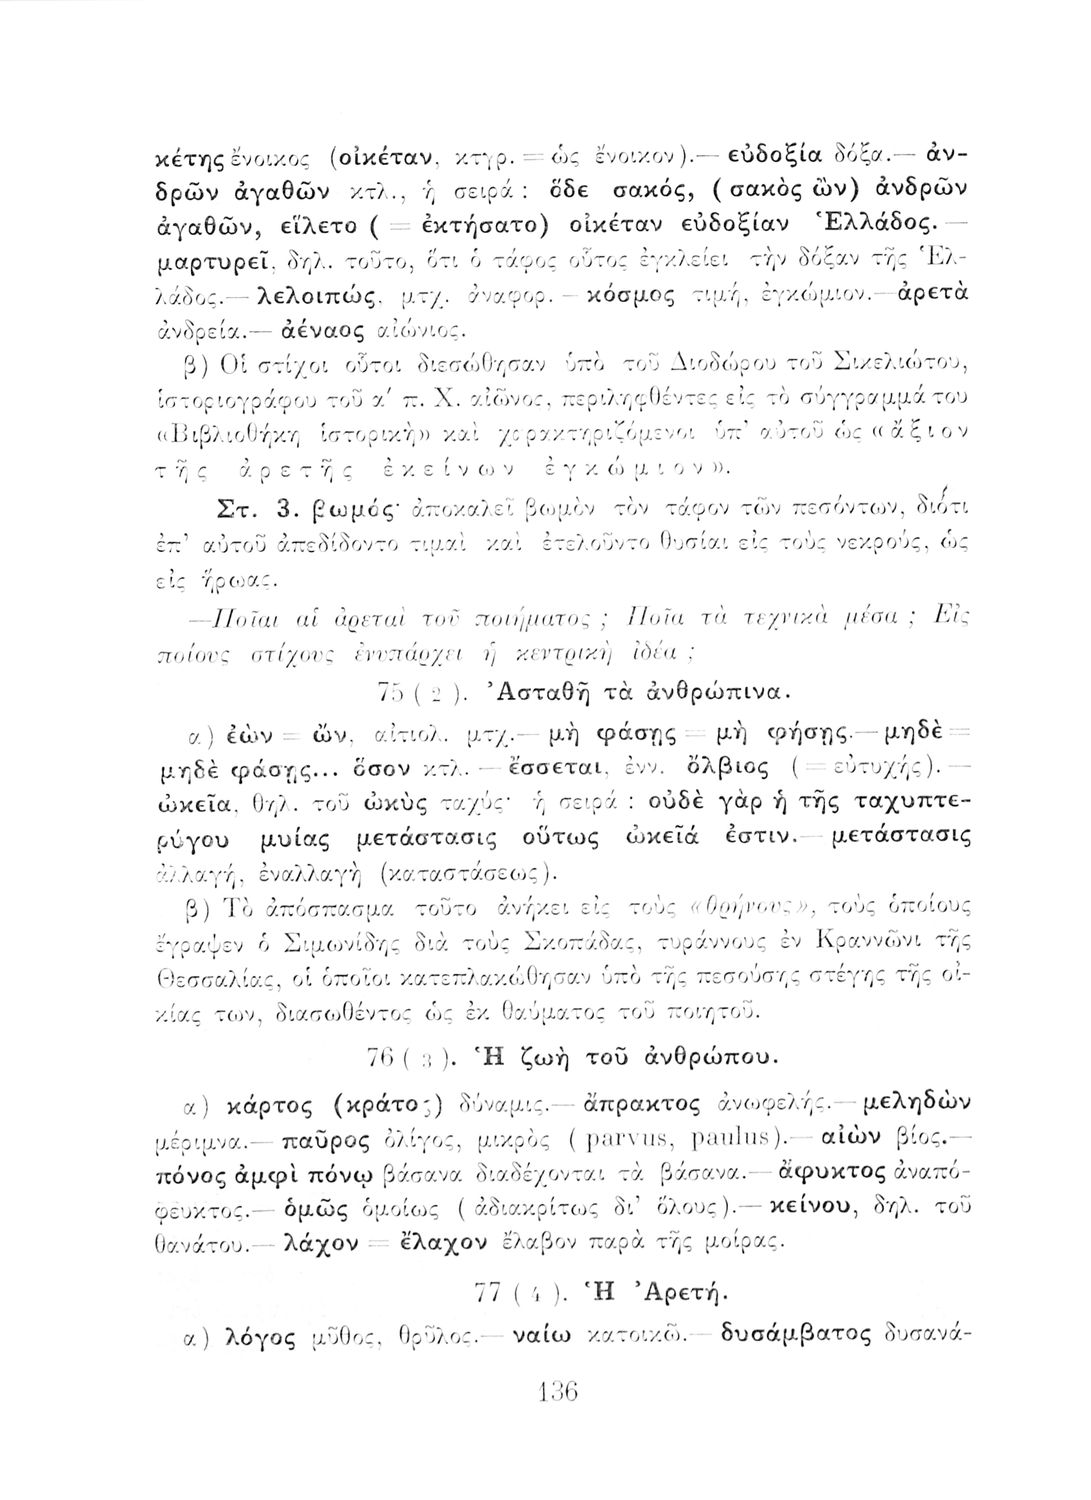 κέτης ἔνοικος (οἰκέταν, κτγρ. = ὡς ἔνοικον).— εὐδοξία δόξα.— ἀν-
δρῶν ἀγαθῶν κτλ., ἡ σειρά : ὅδε σακός, ( σακὸς ὢν) ἀνδρῶν
ἀγαθῶν, εἵλετο ( = ἐκτήσατο) οἰκέταν εὐδοξίαν Ἑλλάδος. —
μαρτυρεῖ, δηλ. τοῦτο, ὅτι ὁ τάφος οὗτος ἐγκλείει τὴν δόξαν τῆς Ἑλ-
λάδος.— λελοιπώς, μτχ. ἀναφορ. — κόσμος τιμή, ἐγκώμιον.— ἀρετὰ
ἀνδρεία.— ἀέναος αἰώνιος.
β) Οἱ στίχοι οὗτοι διεσώθησαν ὑπὸ τοῦ Διοδώρου τοῦ Σικελιώτου,
ἱστοριογράφου τοῦ α΄ π. Χ. αἰῶνος, περιληφθέντες εἰς τὸ σύγγραμμά του
«Βιβλιοθήκη ἱστορικὴ» καὶ χαρακτηριζόμενοι ὑπ' αὐτοῦ ὡς «ἄξιον
τῆς ἀρετῆς ἐκείνων ἐγκώμιον».
Στ. 3. βωμός· ἀποκαλεῖ βωμὸν τὸν τάφον τῶν πεσόντων, διότι
ἐπ' αὐτοῦ ἀπεδίδοντο τιμαὶ καὶ ἐτελοῦντο θυσίαι εἰς τοὺς νεκρούς, ὡς
εἰς ἥρωας.
—Ποῖαι αἱ ἀρεταὶ τοῦ ποιήματος ; Ποῖα τὰ τεχνικὰ μέσα ; Εἰς
ποίους στίχους ἐνυπάρχει ἡ κεντρικὴ ἰδέα ;
75 ( 2 ). Ἀσταθῆ τὰ ἀνθρώπινα.
α) ἐὼν = ὤν, αἰτιολ. μτχ.— μὴ φάσῃς = μὴ φήσῃς.— μηδὲ =
μηδὲ φάσῃς... ὅσον κτλ. — ἔσσεται, ἐνν. ὄλβιος ( = εὐτυχής). —
ὠκεῖα, θηλ. τοῦ ὠκὺς ταχύς· ἡ σειρά : οὐδὲ γὰρ ἡ τῆς ταχυπτε-
ρύγου μυίας μετάστασις οὕτως ὠκεῖά ἐστιν.— μετάστασις
ἀλλαγή, ἐναλλαγὴ (καταστάσεως).
β) Τὸ ἀπόσπασμα τοῦτο ἀνήκει εἰς τοὺς «θρήνους», τοὺς ὁποίους
ἔγραψεν ὁ Σιμωνίδης διὰ τοὺς Σκοπάδας, τυράννους ἐν Κραννῶνι τῆς
Θεσσαλίας, οἱ ὁποῖοι κατεπλακώθησαν ὑπὸ τῆς πεσούσης στέγης τῆς οἰ-
κίας των, διασωθέντος ὡς ἐκ θαύματος τοῦ ποιητοῦ.
76 ( 3 ). Ἡ ζωὴ τοῦ ἀνθρώπου.
α) κάρτος (κράτος) δύναμις.— ἄπρακτος ἀνωφελής.— μεληδὼν
μέριμνα.— παῦρος ὀλίγος, μικρὸς ( parvus, paulus).— αἰὼν βίος.—
πόνος ἀμφὶ πόνῳ βάσανα διαδέχονται τὰ βάσανα.— ἄφυκτος ἀναπό-
φευκτος.— ὁμῶς ὁμοίως ( ἀδιακρίτως δι' ὅλους).— κείνου, δηλ. τοῦ
θανάτου.— λάχον = ἔλαχον ἔλαβον παρὰ τῆς μοίρας.
77 ( 4 ). Ἡ Ἀρετή.
α) λόγος μῦθος, θρῦλος.— ναίω κατοικῶ.— δυσάμβατος δυσανά-
136